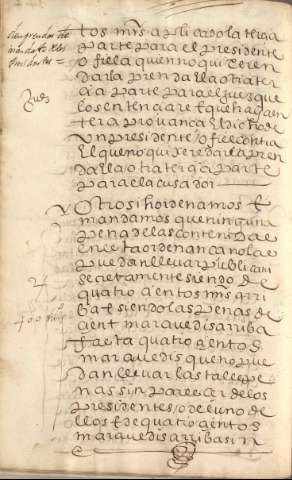 tos mrs apli cado la terçia
parte para el presidente
o fiel a quen no qui eren
dar la prenda ella otra ter
cia parte para el jues que
lo sentençiare E que haga en
tera provanca El dicho
Un presidente o fiel contra
El que no qui ere dar la pren
da ella otra terçia parte
para el acusador
Otrosi hordenamos E
mandamos que ninguna
pena de las contenidas
En esta ordenança no la
puedan llevar publica ni
secretamente siendo de
quatro çientos mrs arri
ba E siendo las penas de
çient maravedis arriba
fasta quatro çientos
maravedis que no pue
dan llevar las tales pe
nas sin pareçer de los
presidentes o del uno de
llos E de quatro çientos
maravedis arriba sin
Jues